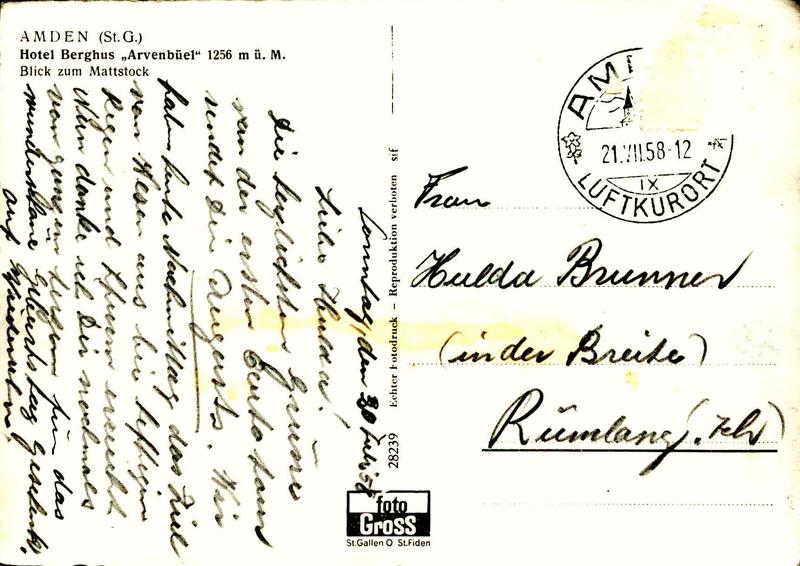 AMDEN (St.G.)
Hotel Berghus „Arvenbüel" 1256 m ü. M.
Blick zum Mattstock
Sonntag, den 20 Juli 58
Liebe Hulda!
Die herzlichsten Grüsse
von der ersten
sendet Dir Augusta. Wir
haben heute Nachmittag das Ziel
von Wesen aus bei heftigem
Regen und Sturm erreicht
Nun danke ich Dir nochmals
von ganzem Herzen für das
wunderbare Geburtstag Geschenk,
auf Wiedersehn.
28239 Echter Fotodruck – Reproduktion verboten sif
foto
Gross
St.Gallen O St.Fiden
AM
21.VII.58-12
IX
LUFTKURORT
Frau
Hulda Brunner
(in der Breite)
Rümlang (Zch)